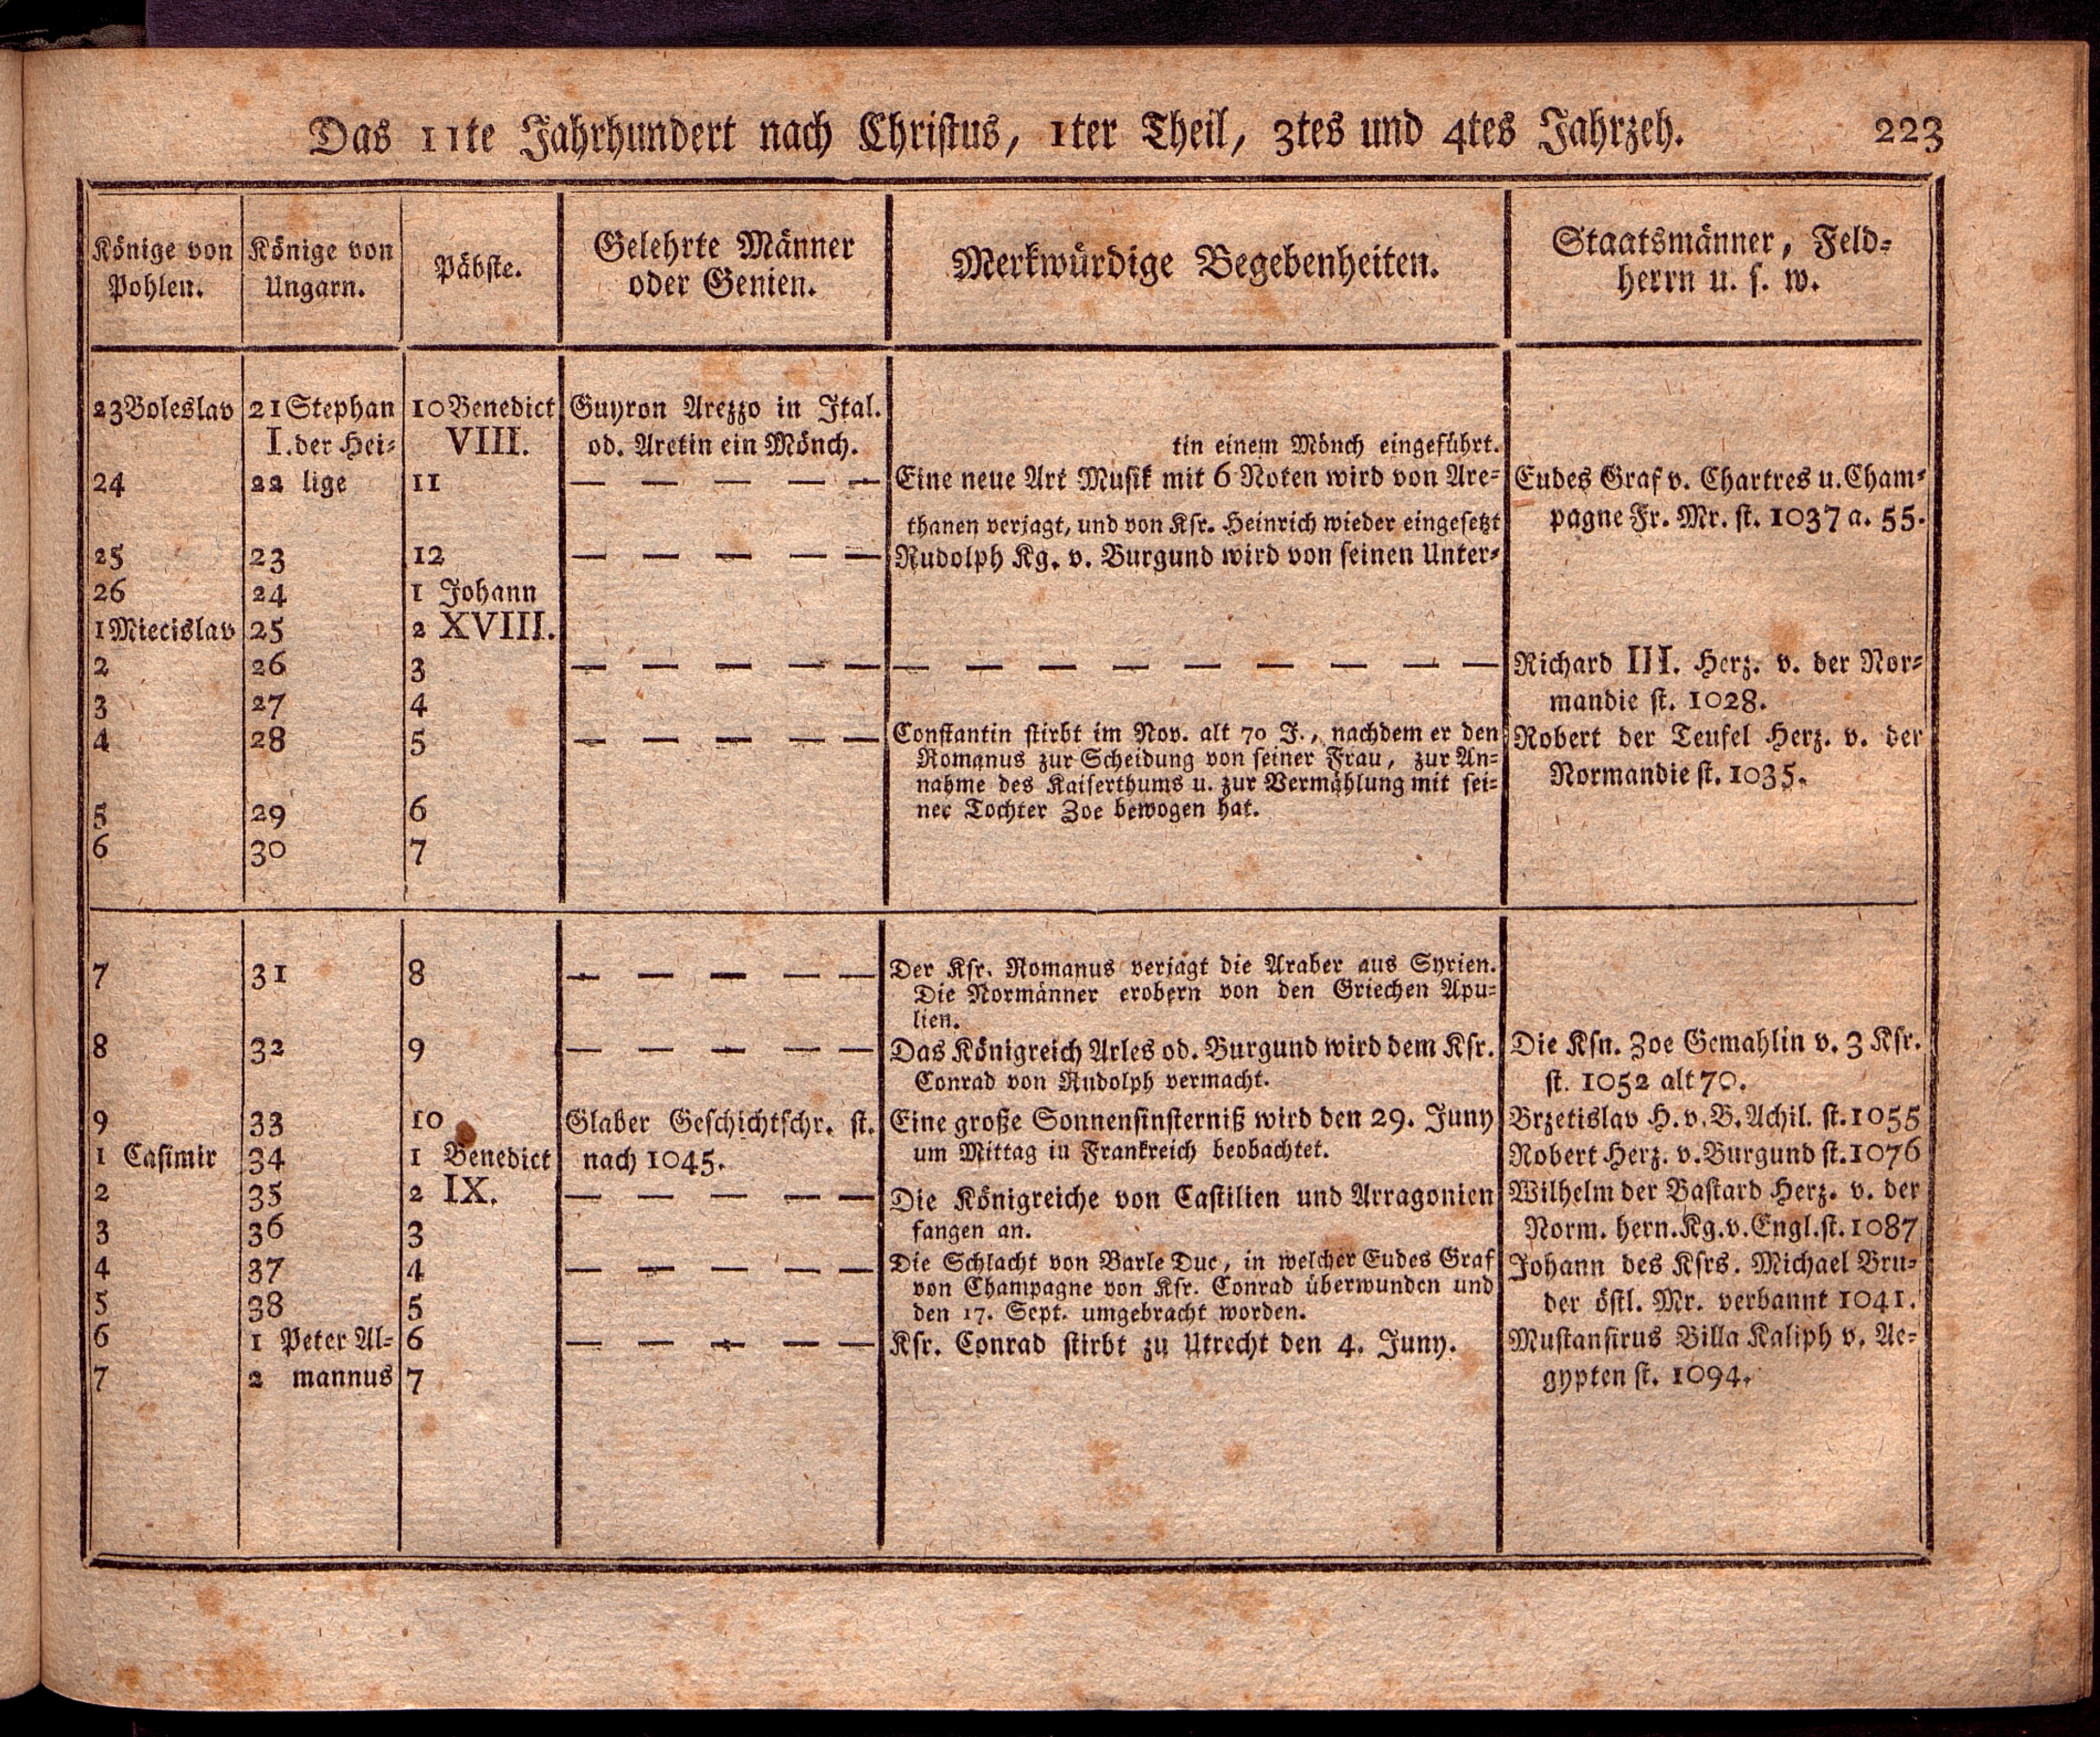 Das 11te Jahrhundert nach Christus, 1ter Theil, 3tes und 4tes Jahrzeh. 223
Könige von Pohlen. Könige von Ungarn. Päbste. Gelehrte Männer oder Genien. Merkwürdige Begebenheiten. Staatsmänner, Feld-
herrn u. s. w.
23 Boleslav 21 Stephan 10 Benedict Guyron Arezzo in Ital.
I. der Hei- VIII. od. Aretin ein Mönch. tin einem Mönch eingeführt.
24 22 lige 11 — — — — — Eine neue Art Musik mit 6 Noten wird von Are- Eudes Graf v. Chartres u. Cham-
thanen verjagt, und von Ksr. Heinrich wieder eingesetzt pagne Fr. Mr. st. 1037 a. 55.
25 23 12 — — — — — Rudolph Kg. v. Burgund wird von seinen Unter-
26 24 1 Johann
1 Miecislav 25 2 XVIII.
2 26 3 — — — — — — — — — — — — — Richard III. Herz. v. der Nor-
3 27 4 mandie st. 1028.
4 28 5 — — — — — Constantin stirbt im Nov. alt 70 J., nachdem er den Robert der Teufel Herz. v. der
Romanus zur Scheidung von seiner Frau, zur An- Normandie st. 1035.
nahme des Kaiserthums u. zur Vermählung mit sei-
5 29 6 ner Tochter Zoe bewogen hat.
6 30 7
7 31 8 — — — — — Der Ksr. Romanus verjagt die Araber aus Syrien.
Die Normänner erobern von den Griechen Apu-
lien.
8 32 9 — — — — — Das Königreich Arles od. Burgund wird dem Ksr. Die Ksn. Zoe Gemahlin v. 3 Ksr.
Conrad von Rudolph vermacht. st. 1052 alt 70.
9 33 10 Glaber Geschichtschr. st. Eine große Sonnenfinsterniß wird den 29. Juny Brzetislav H. v. B. Achil. st. 1055
1 Casimir 34 1 Benedict nach 1045. um Mittag in Frankreich beobachtet. Robert Herz. v. Burgund st. 1076
2 35 2 IX. — — — — — Die Königreiche von Castilien und Arragonien Wilhelm der Bastard Herz. v. der
3 36 3 fangen an. Norm. hern. Kg. v. Engl. st. 1087
4 37 4 — — — — — Die Schlacht von Barle Duc, in welcher Eudes Graf Johann des Ksrs. Michael Bru-
von Champagne von Ksr. Conrad überwunden und
5 38 5 den 17. Sept. umgebracht worden. der östl. Mr. verbannt 1041.
6 1 Peter Al- 6 — — — — — Ksr. Conrad stirbt zu Utrecht den 4. Juny. Mustansirus Billa Kaliph v. Ae-
7 2 mannus 7 gypten st. 1094.